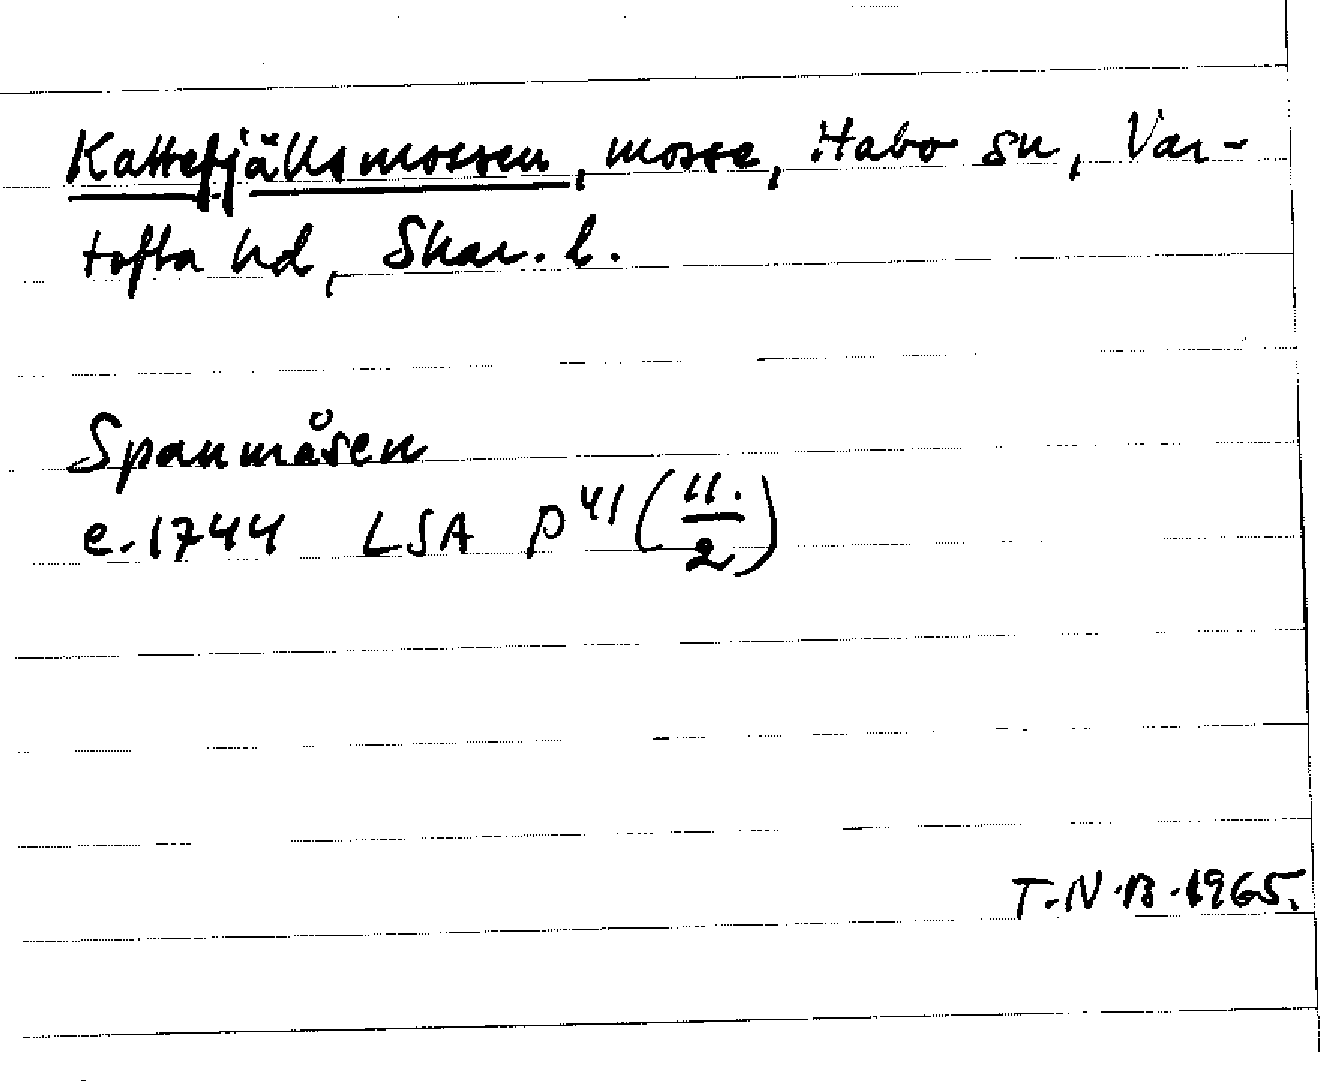 Kattefjällsmossen, mosse, Habo sn, Var-
tofta hd, Skar. l.
Spanmåsen
e. 1744 LSA P 41 (11./2)
T.N.B. 1965.